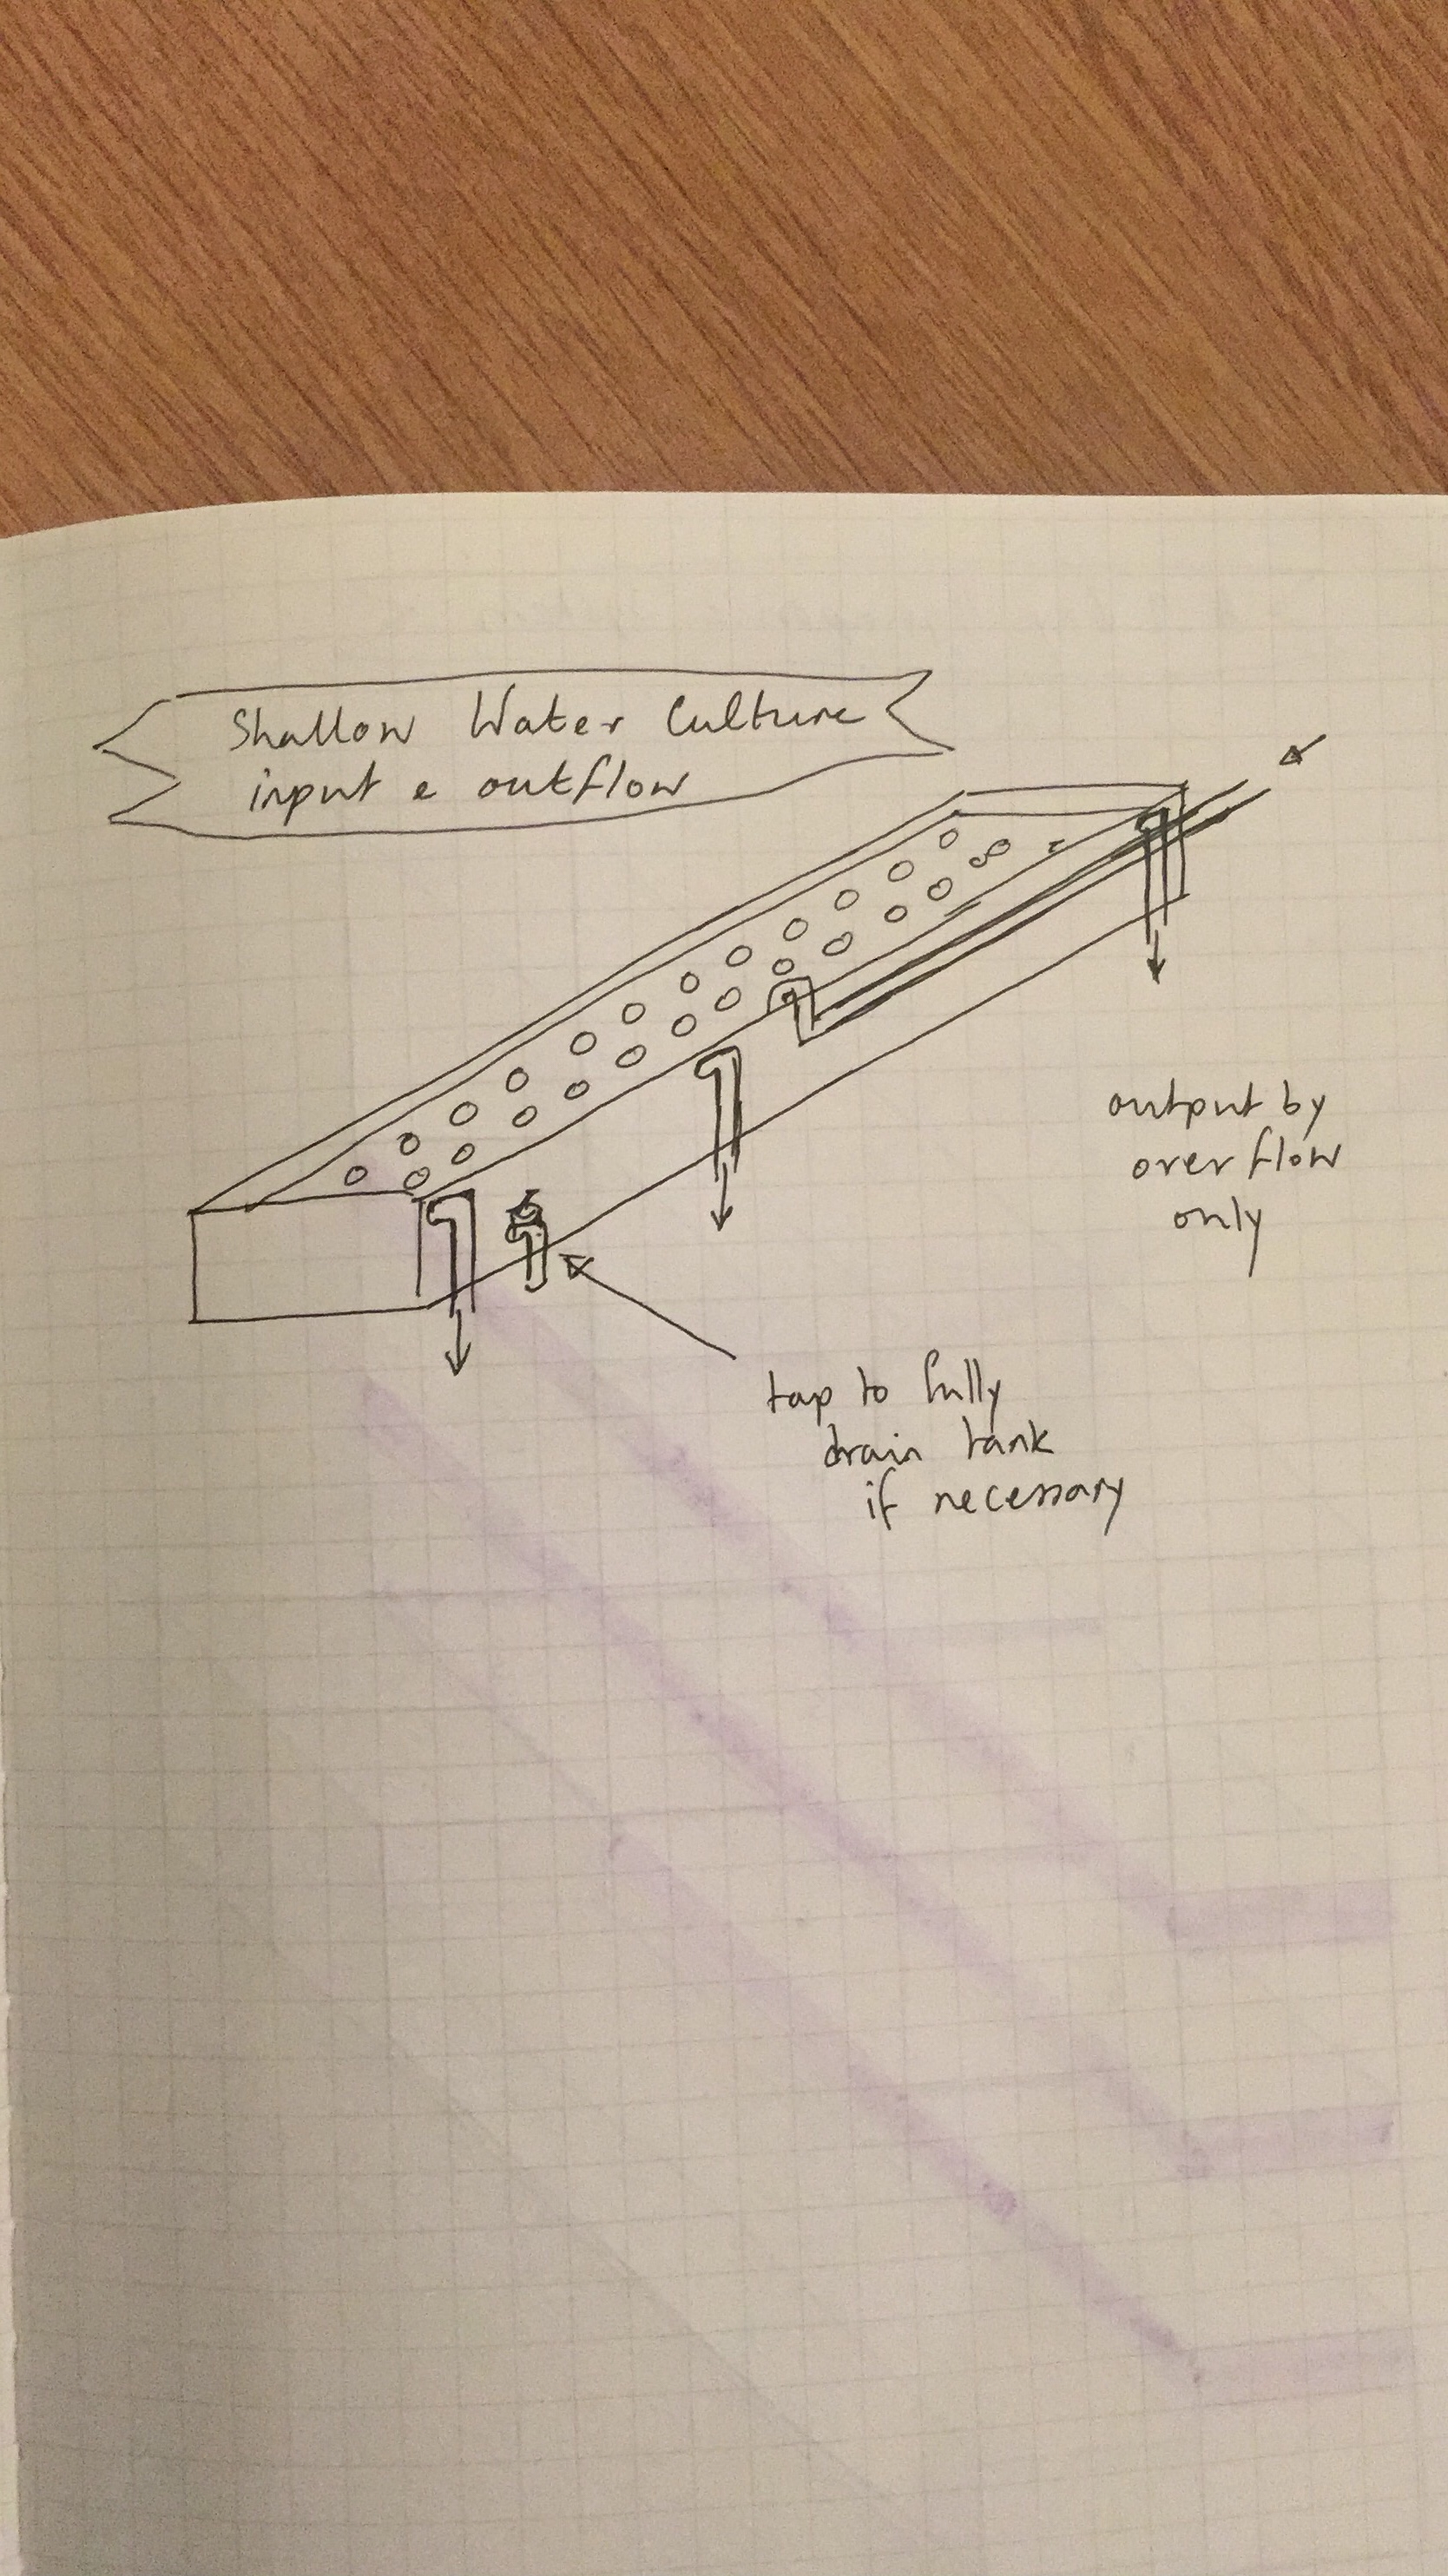 Shallow Water Culture
input & outflow
output by
overflow
only
tap to fully
drain tank
if necessary